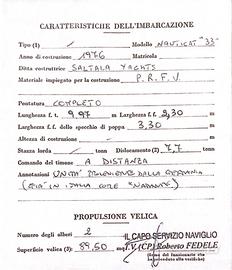 CARATTERISTICHE DELL'IMBARCAZIONE
Tipo (1) / Modello NAUTICAT "33"
Anno di costruzione 1976 Matricola
Ditta costruttrice SALTALA YACHTS
Materiale impiegato per la costruzione P.R.F.V.
Pontatura COMPLETO
Lunghezza f. f. 9,97 m Larghezza f. f. 3,30 m
Larghezza f.f. dello specchio di poppa 3,30 m
Scafismo m
Stazza lorda / tonn Dislocamento (2) 7,7 tonn
Comando del timone A DISTANZA
Annotazioni UNITÀ PROVENIENTE DALLA GERMANIA
(GIÀ IN ITALIA COME "NADANTE")
PROPULSIONE VELICA
Numero degli alberi 2
IL CAPO SERVIZIO NAVIGLIO
Superficie velica (3) 89,50 mq
T.V. (CP) Roberto FEDELE
(firma del funzionario che